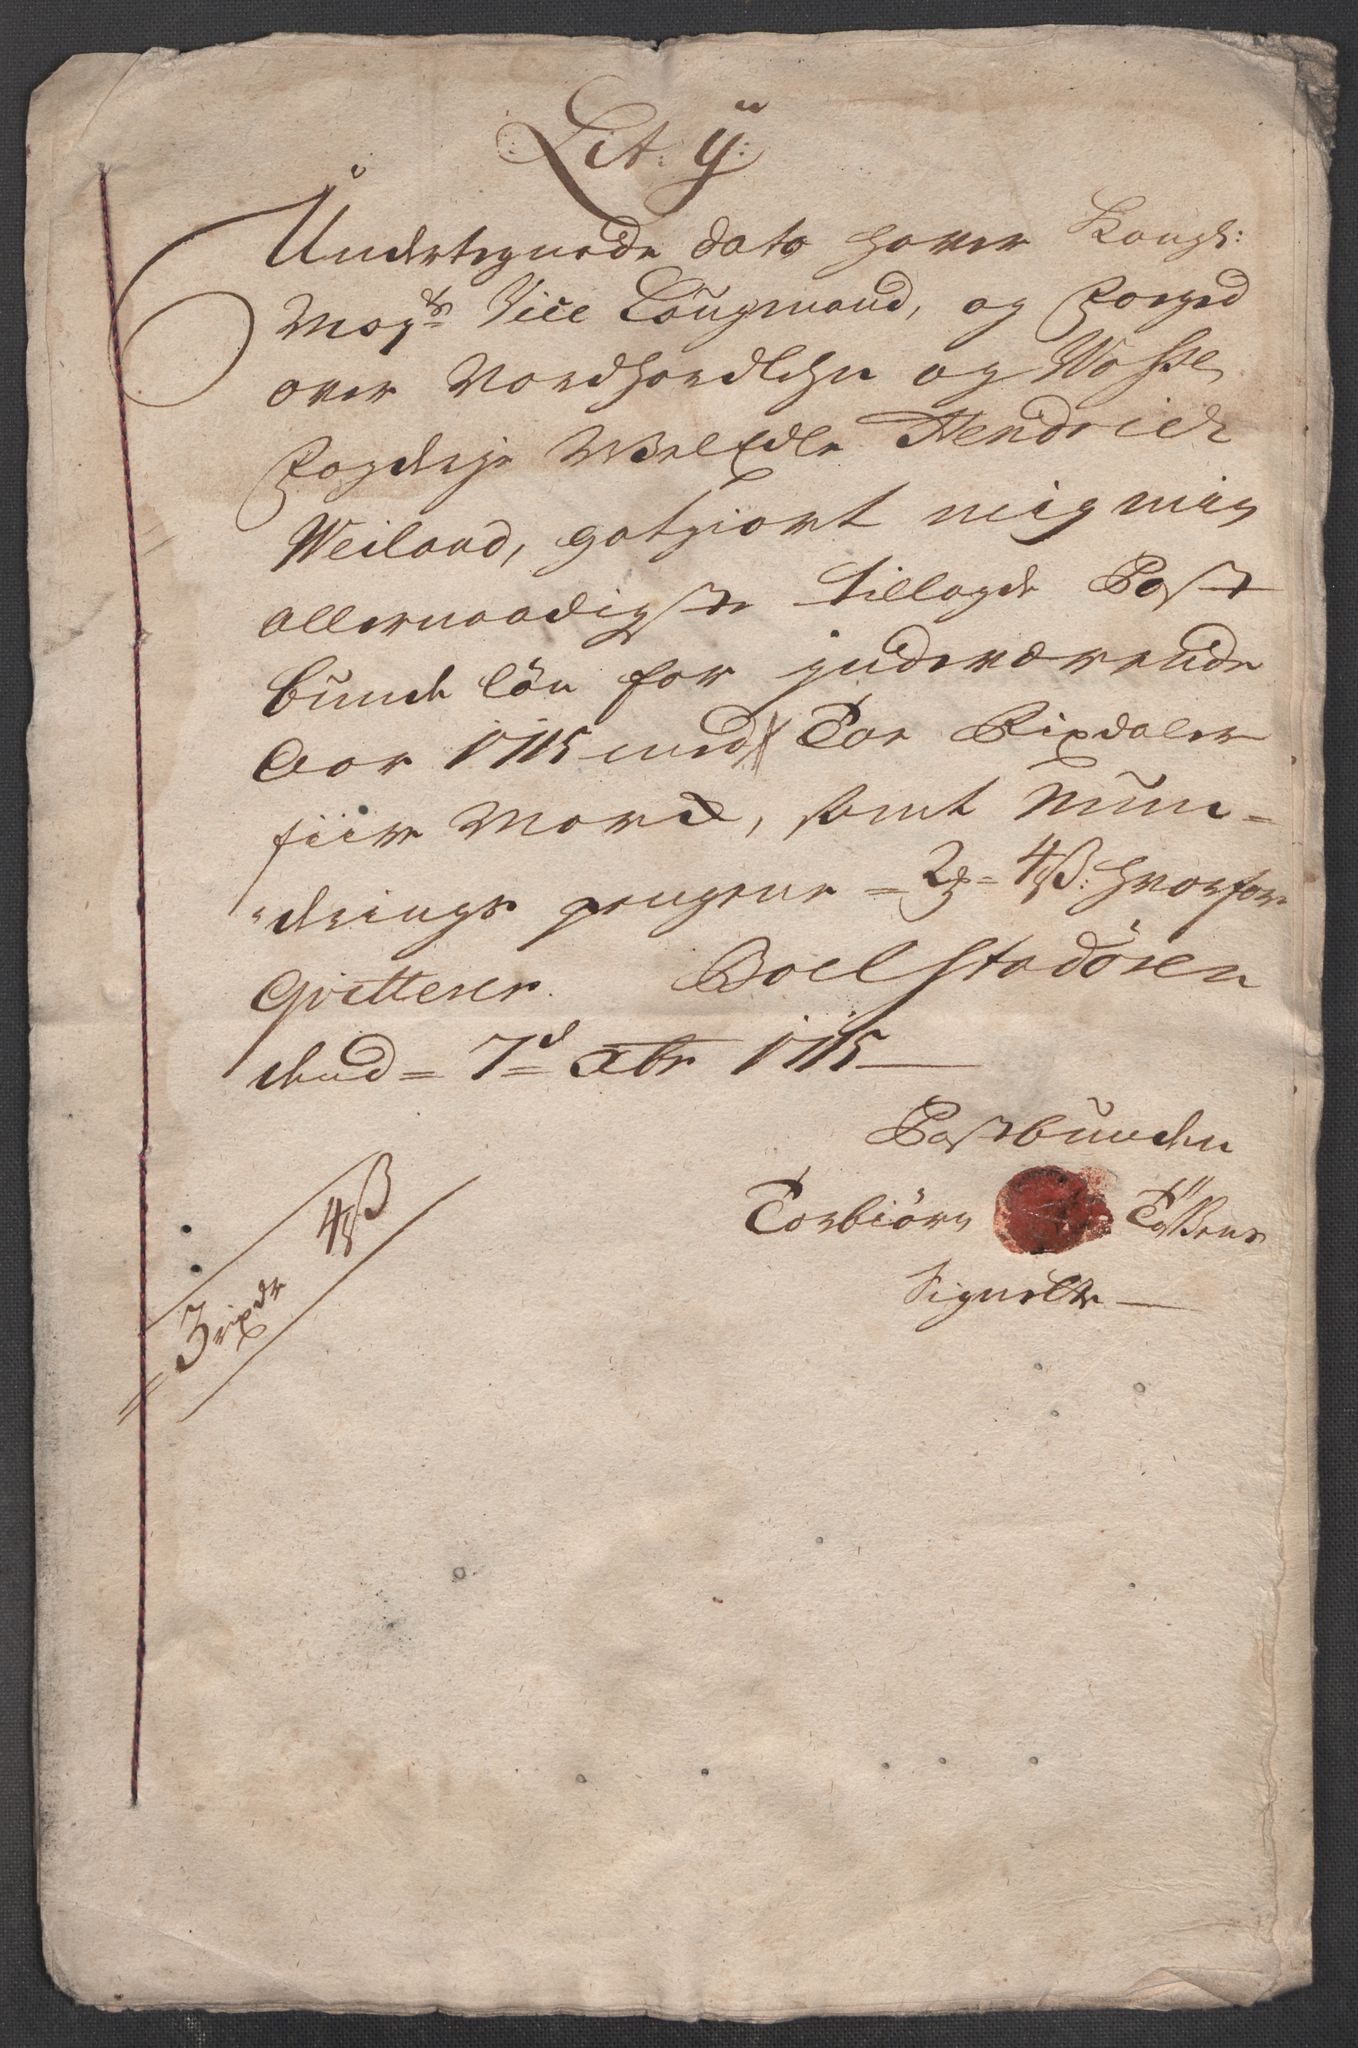 Lit: ÿ:
Undertegnede dato haver Kongl:
May:ts Vice Laugmand, og Foged
over Nordhordlehn og Wosse
Fogderje WelEdle Hendrich
Weiland, gotgiort mig min
allernaadigste tillagde Post
bunde lön for indeværende
Aar 1715 med Toe Rixdaler
fiire Mark, samt Mun-
derings pengene = 2 = 4 ß: hvorfor
Qvitterer. Boelstadören
dend = 7d = Xbr 1715
Postbunden
Torbiörn Toßens
Signette
3 rixdr 4 ß